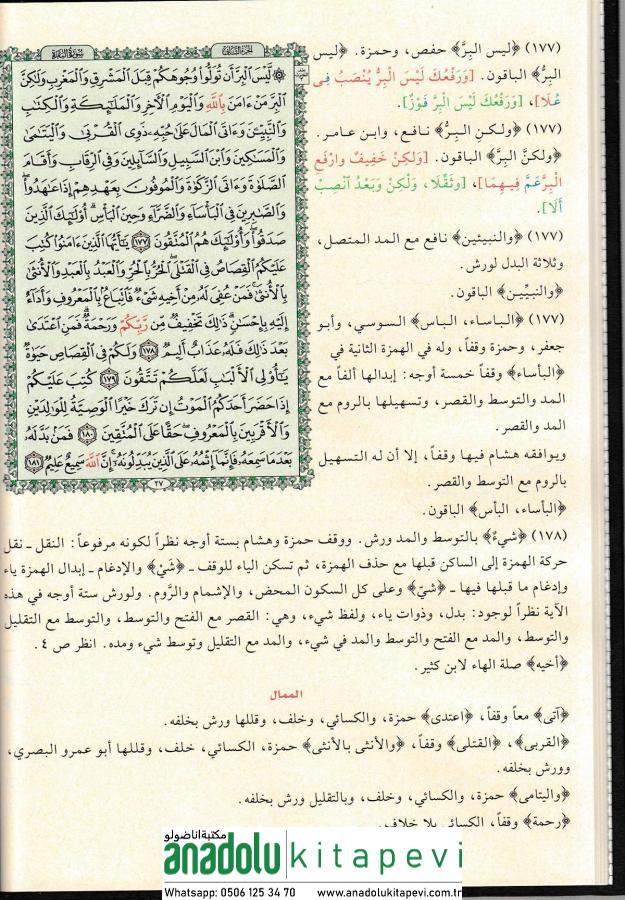 (١٧٧) ﴿ليس البِرَّ﴾ حفص، وحمزة. ﴿ليس
البِرُّ﴾ الباقون. [وَرَفْعُكَ لَيْسَ الْبِرُّ يُنْصَبُ فِي
عُلَا]، [وَرَفْعُكَ لَيْسَ الْبِرَّ فَوْزٌ].
(١٧٧) ﴿ولكنِ البِرُّ﴾ نافع، وابن عامر.
﴿ولكنَّ البِرَّ﴾ الباقون. [وَلَكِنْ خَفِيفٌ وارْفَعِ
الْبِرَّ عَمَّ فِيهِمَا]، [وثَقِّلَا، وَلَكِنْ وَبَعْدُ انْصِبْ
أَلَا].
(١٧٧) ﴿والنبيئين﴾ نافع مع المد المتصل،
وثلاثة البدل لورش.
﴿والنبيِّين﴾ الباقون.
(١٧٧) ﴿الباساء، الباس﴾ السوسي، وأبو
جعفر، وحمزة وقفاً، وله في الهمزة الثانية في
﴿البأساء﴾ وقفاً خمسة أوجه: إبدالها ألفاً مع
المد والتوسط والقصر، وتسهيلها بالروم مع
المد والقصر.
ويوافقه هشام فيها وقفاً، إلا أن له التسهيل
بالروم مع التوسط والقصر.
﴿البأساء، البأس﴾ الباقون.
سورة البقرة
الجزء الثاني
۞ لَّيْسَ ٱلْبِرَّ أَن تُوَلُّوا۟ وُجُوهَكُمْ قِبَلَ ٱلْمَشْرِقِ وَٱلْمَغْرِبِ وَلَٰكِنَّ
ٱلْبِرَّ مَنْ ءَامَنَ بِٱللَّهِ وَٱلْيَوْمِ ٱلْءَاخِرِ وَٱلْمَلَٰٓئِكَةِ وَٱلْكِتَٰبِ
وَٱلنَّبِيِّـۧنَ وَءَاتَى ٱلْمَالَ عَلَىٰ حُبِّهِۦ ذَوِى ٱلْقُرْبَىٰ وَٱلْيَتَٰمَىٰ
وَٱلْمَسَٰكِينَ وَٱبْنَ ٱلسَّبِيلِ وَٱلسَّآئِلِينَ وَفِى ٱلرِّقَابِ وَأَقَامَ
ٱلصَّلَوٰةَ وَءَاتَى ٱلزَّكَوٰةَ وَٱلْمُوفُونَ بِعَهْدِهِمْ إِذَا عَٰهَدُوا۟ۖ
وَٱلصَّٰبِرِينَ فِى ٱلْبَأْسَآءِ وَٱلضَّرَّآءِ وَحِينَ ٱلْبَأْسِۗ أُو۟لَٰٓئِكَ ٱلَّذِينَ
صَدَقُوا۟ۖ وَأُو۟لَٰٓئِكَ هُمُ ٱلْمُتَّقُونَ ١٧٧ يَٰٓأَيُّهَا ٱلَّذِينَ ءَامَنُوا۟ كُتِبَ
عَلَيْكُمُ ٱلْقِصَاصُ فِى ٱلْقَتْلَىۖ ٱلْحُرُّ بِٱلْحُرِّ وَٱلْعَبْدُ بِٱلْعَبْدِ وَٱلْأُنثَىٰ
بِٱلْأُنثَىٰۚ فَمَنْ عُفِىَ لَهُۥ مِنْ أَخِيهِ شَىْءٌ فَٱتِّبَاعٌۢ بِٱلْمَعْرُوفِ وَأَدَآءٌ
إِلَيْهِ بِإِحْسَٰنٍۗ ذَٰلِكَ تَخْفِيفٌ مِّن رَّبِّكُمْ وَرَحْمَةٌۗ فَمَنِ ٱعْتَدَىٰ
بَعْدَ ذَٰلِكَ فَلَهُۥ عَذَابٌ أَلِيمٌ ١٧٨ وَلَكُمْ فِى ٱلْقِصَاصِ حَيَوٰةٌ
يَٰٓأُو۟لِى ٱلْأَلْبَٰبِ لَعَلَّكُمْ تَتَّقُونَ ١٧٩ كُتِبَ عَلَيْكُمْ
إِذَا حَضَرَ أَحَدَكُمُ ٱلْمَوْتُ إِن تَرَكَ خَيْرًا ٱلْوَصِيَّةُ لِلْوَٰلِدَيْنِ
وَٱلْأَقْرَبِينَ بِٱلْمَعْرُوفِۖ حَقًّا عَلَى ٱلْمُتَّقِينَ ١٨٠ فَمَنۢ بَدَّلَهُۥ
بَعْدَ مَا سَمِعَهُۥ فَإِنَّمَآ إِثْمُهُۥ عَلَى ٱلَّذِينَ يُبَدِّلُونَهُۥٓۚ إِنَّ ٱللَّهَ سَمِيعٌ عَلِيمٌ ١٨١
٢٧
(١٧٨) ﴿شيءٌ﴾ بالتوسط والمد ورش. ووقف حمزة وهشام بستة أوجه نظراً لكونه مرفوعاً: النقل ـ نقل
حركة الهمزة إلى الساكن قبلها مع حذف الهمزة، ثم تسكن الياء للوقف ـ ﴿شَيْ﴾ والإدغام ـ إبدال الهمزة ياء
وإدغام ما قبلها فيها ـ ﴿شيّ﴾ وعلى كل السكون المحض، والإشمام والرَّوم. ولورش ستة أوجه في هذه
الآية نظراً لوجود: بدل، وذوات ياء، ولفظ شيء، وهي: القصر مع الفتح والتوسط، والتوسط مع التقليل
والتوسط، والمد مع الفتح والتوسط والمد في شيء، والمد مع التقليل وتوسط شيء ومده. انظر ص ٤.
﴿أخيه﴾ صلة الهاء لابن كثير.
الممال
﴿آتى﴾ معاً وقفاً، ﴿اعتدى﴾ حمزة، والكسائي، وخلف، وقللها ورش بخلفه.
﴿القربى﴾، ﴿القتلى﴾ وقفاً، ﴿والأنثى بالأنثى﴾ حمزة، الكسائي، خلف، وقللها أبو عمرو البصري،
وورش بخلفه.
﴿واليتامى﴾ حمزة، والكسائي، وخلف، وبالتقليل ورش بخلفه.
﴿رحمة﴾ وقفاً، الكسائي بلا خلاف.
مكتبة اناضولو
anadolu kitapevi
Whatsapp: 0506 125 34 70 www.anadolukitapevi.com.tr